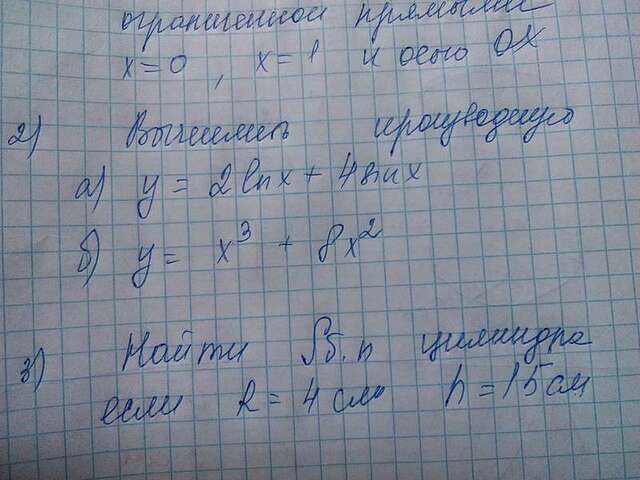 ограниченной прямыми
x=0 , x=1 и осью OX
2) Вычислить производную
а) y = 2lnx + 4sinx
б) y = x³ + 8x²
3) Найти Sб.п цилиндра
если R = 4 см h = 15 см